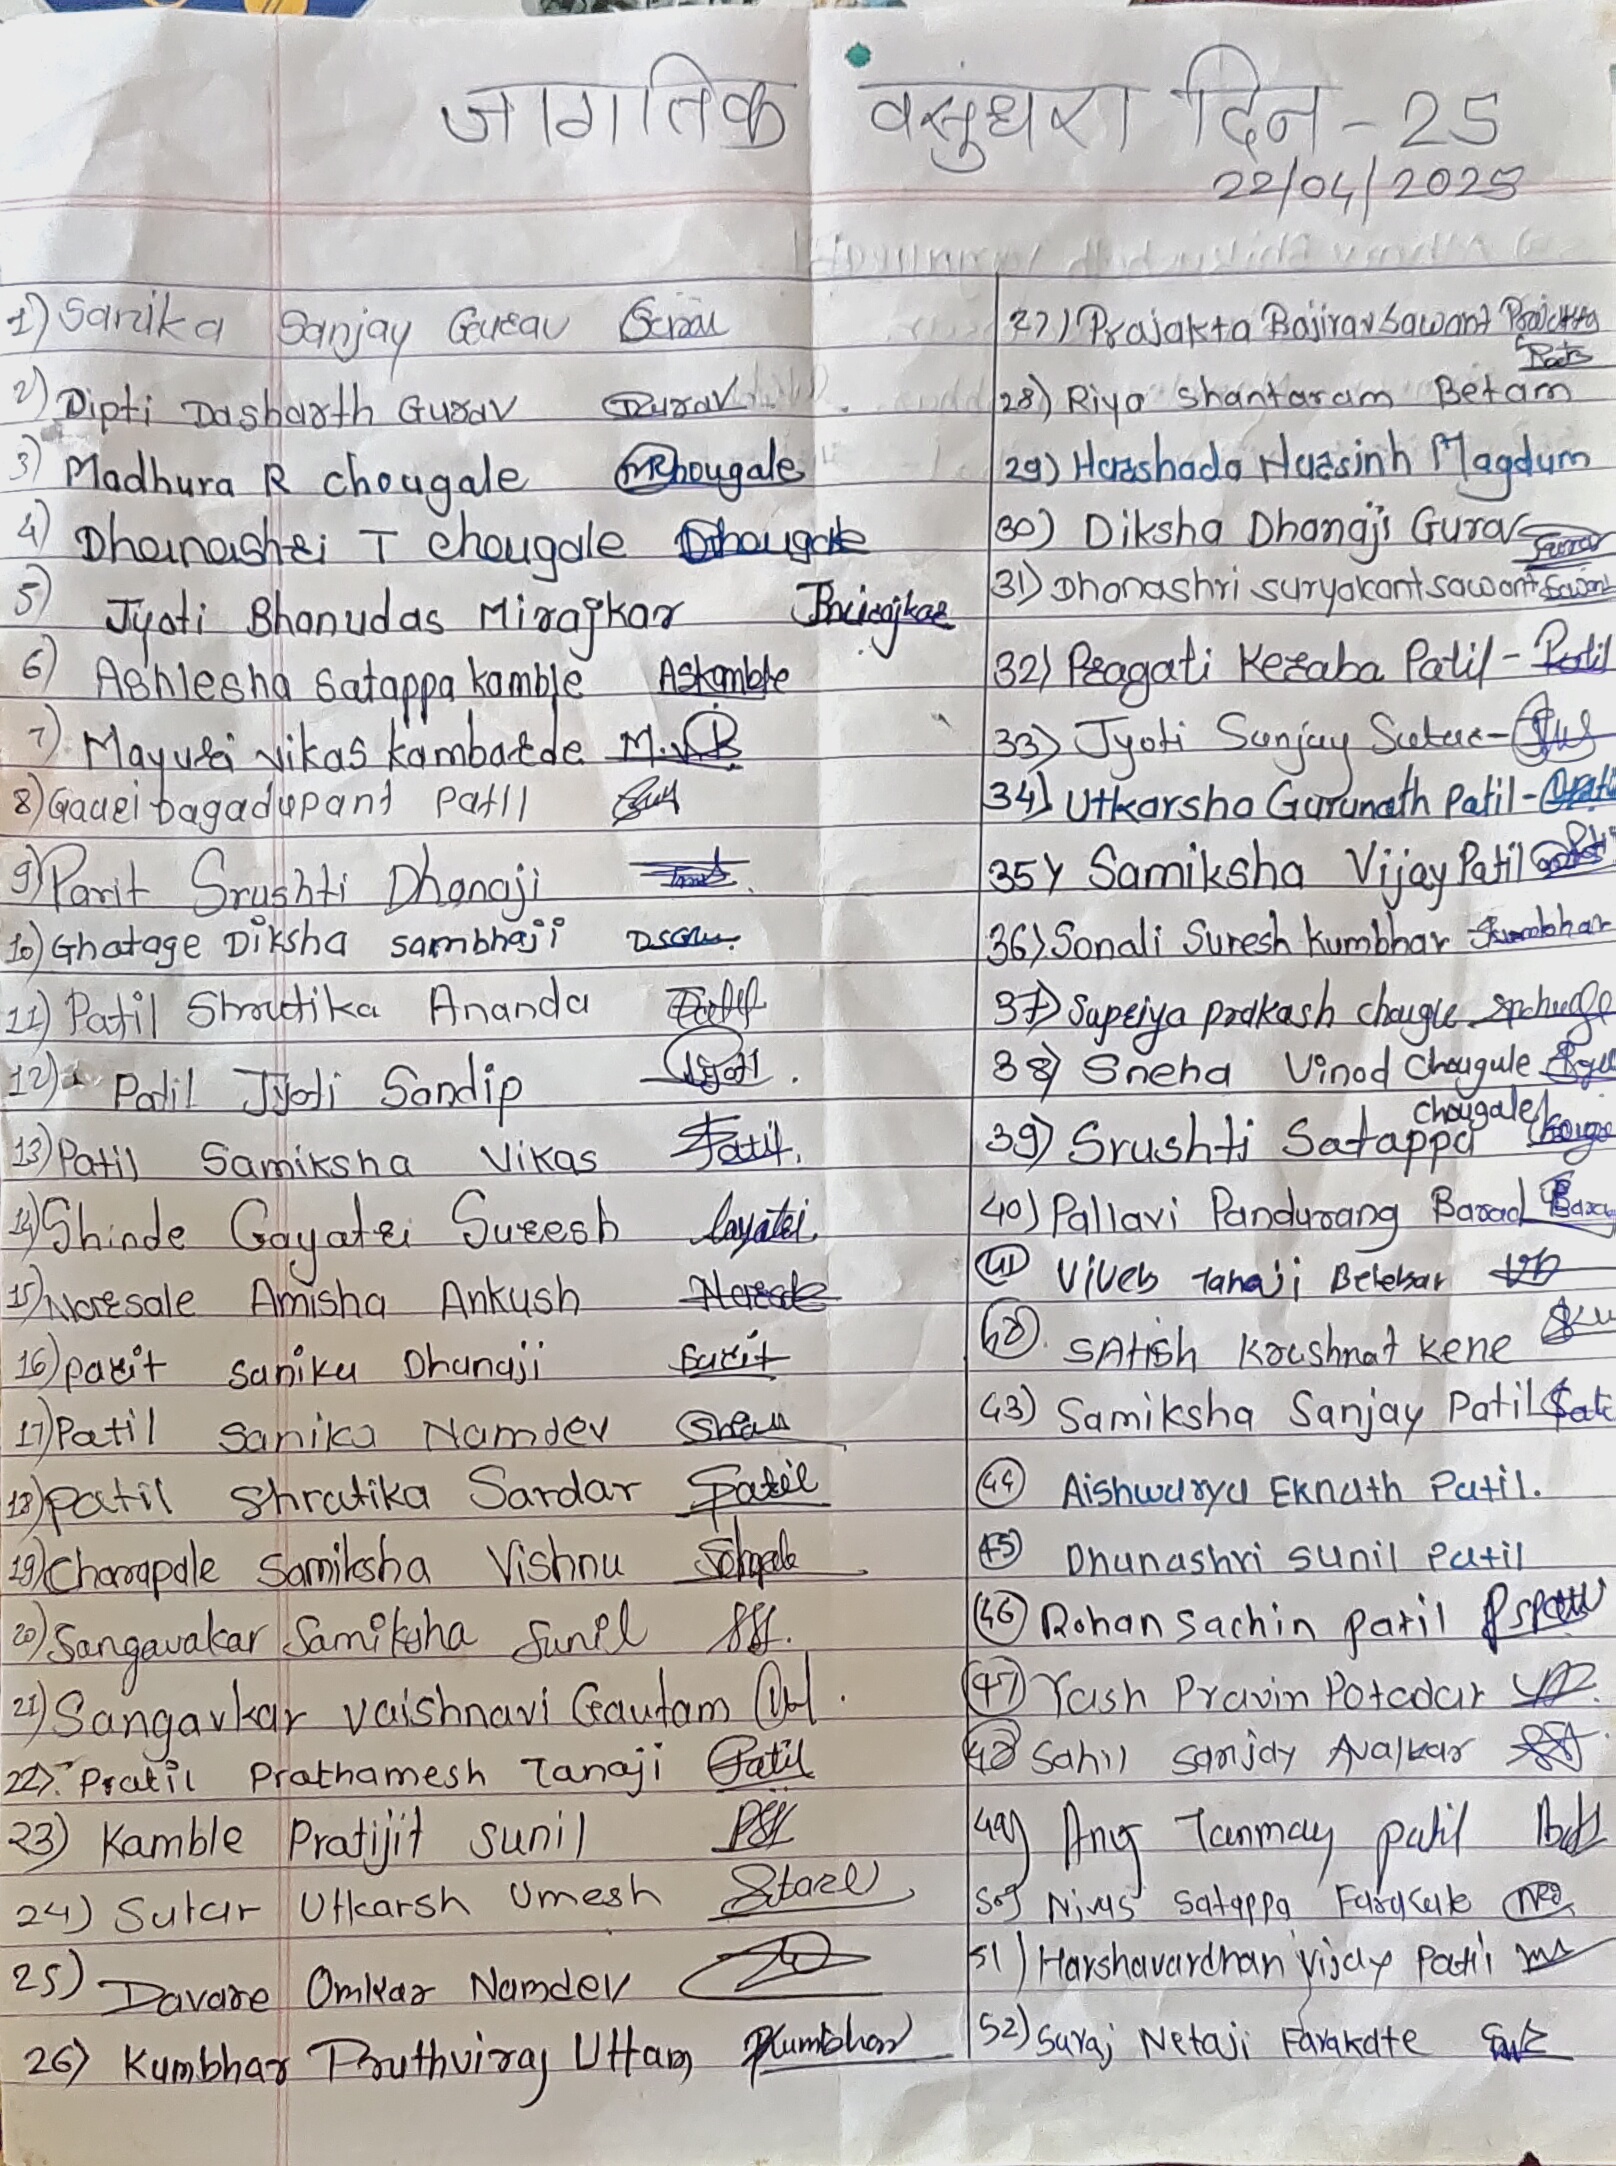 जागतिक वसुंधरा दिन - 25
22/04/2025
1) Sanika Sanjay Gurav
2) Dipti Dasharth Gurav Durav
3) Madhura R chougale MRchougale
4) Dhanashri T chougale Dchougale
5) Jyoti Bhanudas Mirajkar Jmirajkar
6) Ashlesha Satappa kamble ASkamble
7) Mayuri vikas kambarde M.V.B
8) Gauri bagadupant Patil
9) Parit Srushti Dhanaji
10) Ghatage Diksha sambhaji
11) Patil Shrutika Ananda Patil
12) Patil Jyoti Sandip Jyoti
13) Patil Samiksha Vikas Patil
14) Shinde Gayatri Suresh Gayatri
15) Narsale Amisha Ankush Narsale
16) parit sanika Dhanaji Parit
17) Patil Sanika Namdev
18) patil Shrutika Sardar Patil
19) Charapale Samiksha Vishnu
20) Sangavakar Samiksha Sunil
21) Sangavkar vaishnavi Gautam
22) Pratil Prathamesh Tanaji Patil
23) Kamble Pratijit sunil
24) Sutar Utkarsh Umesh
25) Davare Omkar Namdev
26) Kumbhar Pruthviraj Uttam Pkumbhar
27) Prajakta Bajirav Sawant Prajakta
28) Riya Shantaram Betam
29) Harshada Harsinh Magdum
30) Diksha Dhanaji Gurav Gurav
31) Dhanashri suryakant sawant Sawant
32) Pragati Keraba Patil - Patil
33) Jyoti Sanjay Sutar -
34) Utkarsha Gurunath Patil -
35) Samiksha Vijay Patil
36) Sonali Suresh Kumbhar Kumbhar
37) Supriya prakash chougle
38) Sneha Vinod Chougule
39) Srushti Satappa chougale
40) Pallavi Pandurang Barad
41) Vivek Tanaji Belekar
42) SAtish Krushnat kene
43) Samiksha Sanjay Patil
44) Aishwarya Eknath Patil.
45) Dhanashri sunil Patil
46) Rohan Sachin patil
47) Yash Pravin Potadar
48) Sahil Sanjay Avalkar
49) Tanmay patil
50) Nivas Satappa Farakate
51) Harshavardhan Vijay Patil
52) Suraj Netaji Farakate